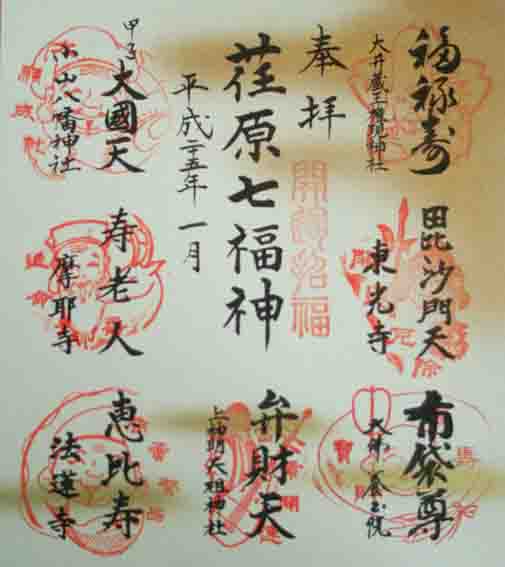 福禄寿
大井蔵王権現神社
毘沙門天
東光寺
布袋尊
大井養玉院
奉拝
開運招福
荏原七福神
平成二十五年一月
弁財天
上神明天祖神社
甲子
大國天
小山八幡神社
寿老人
摩耶寺
恵比寿
法蓮寺